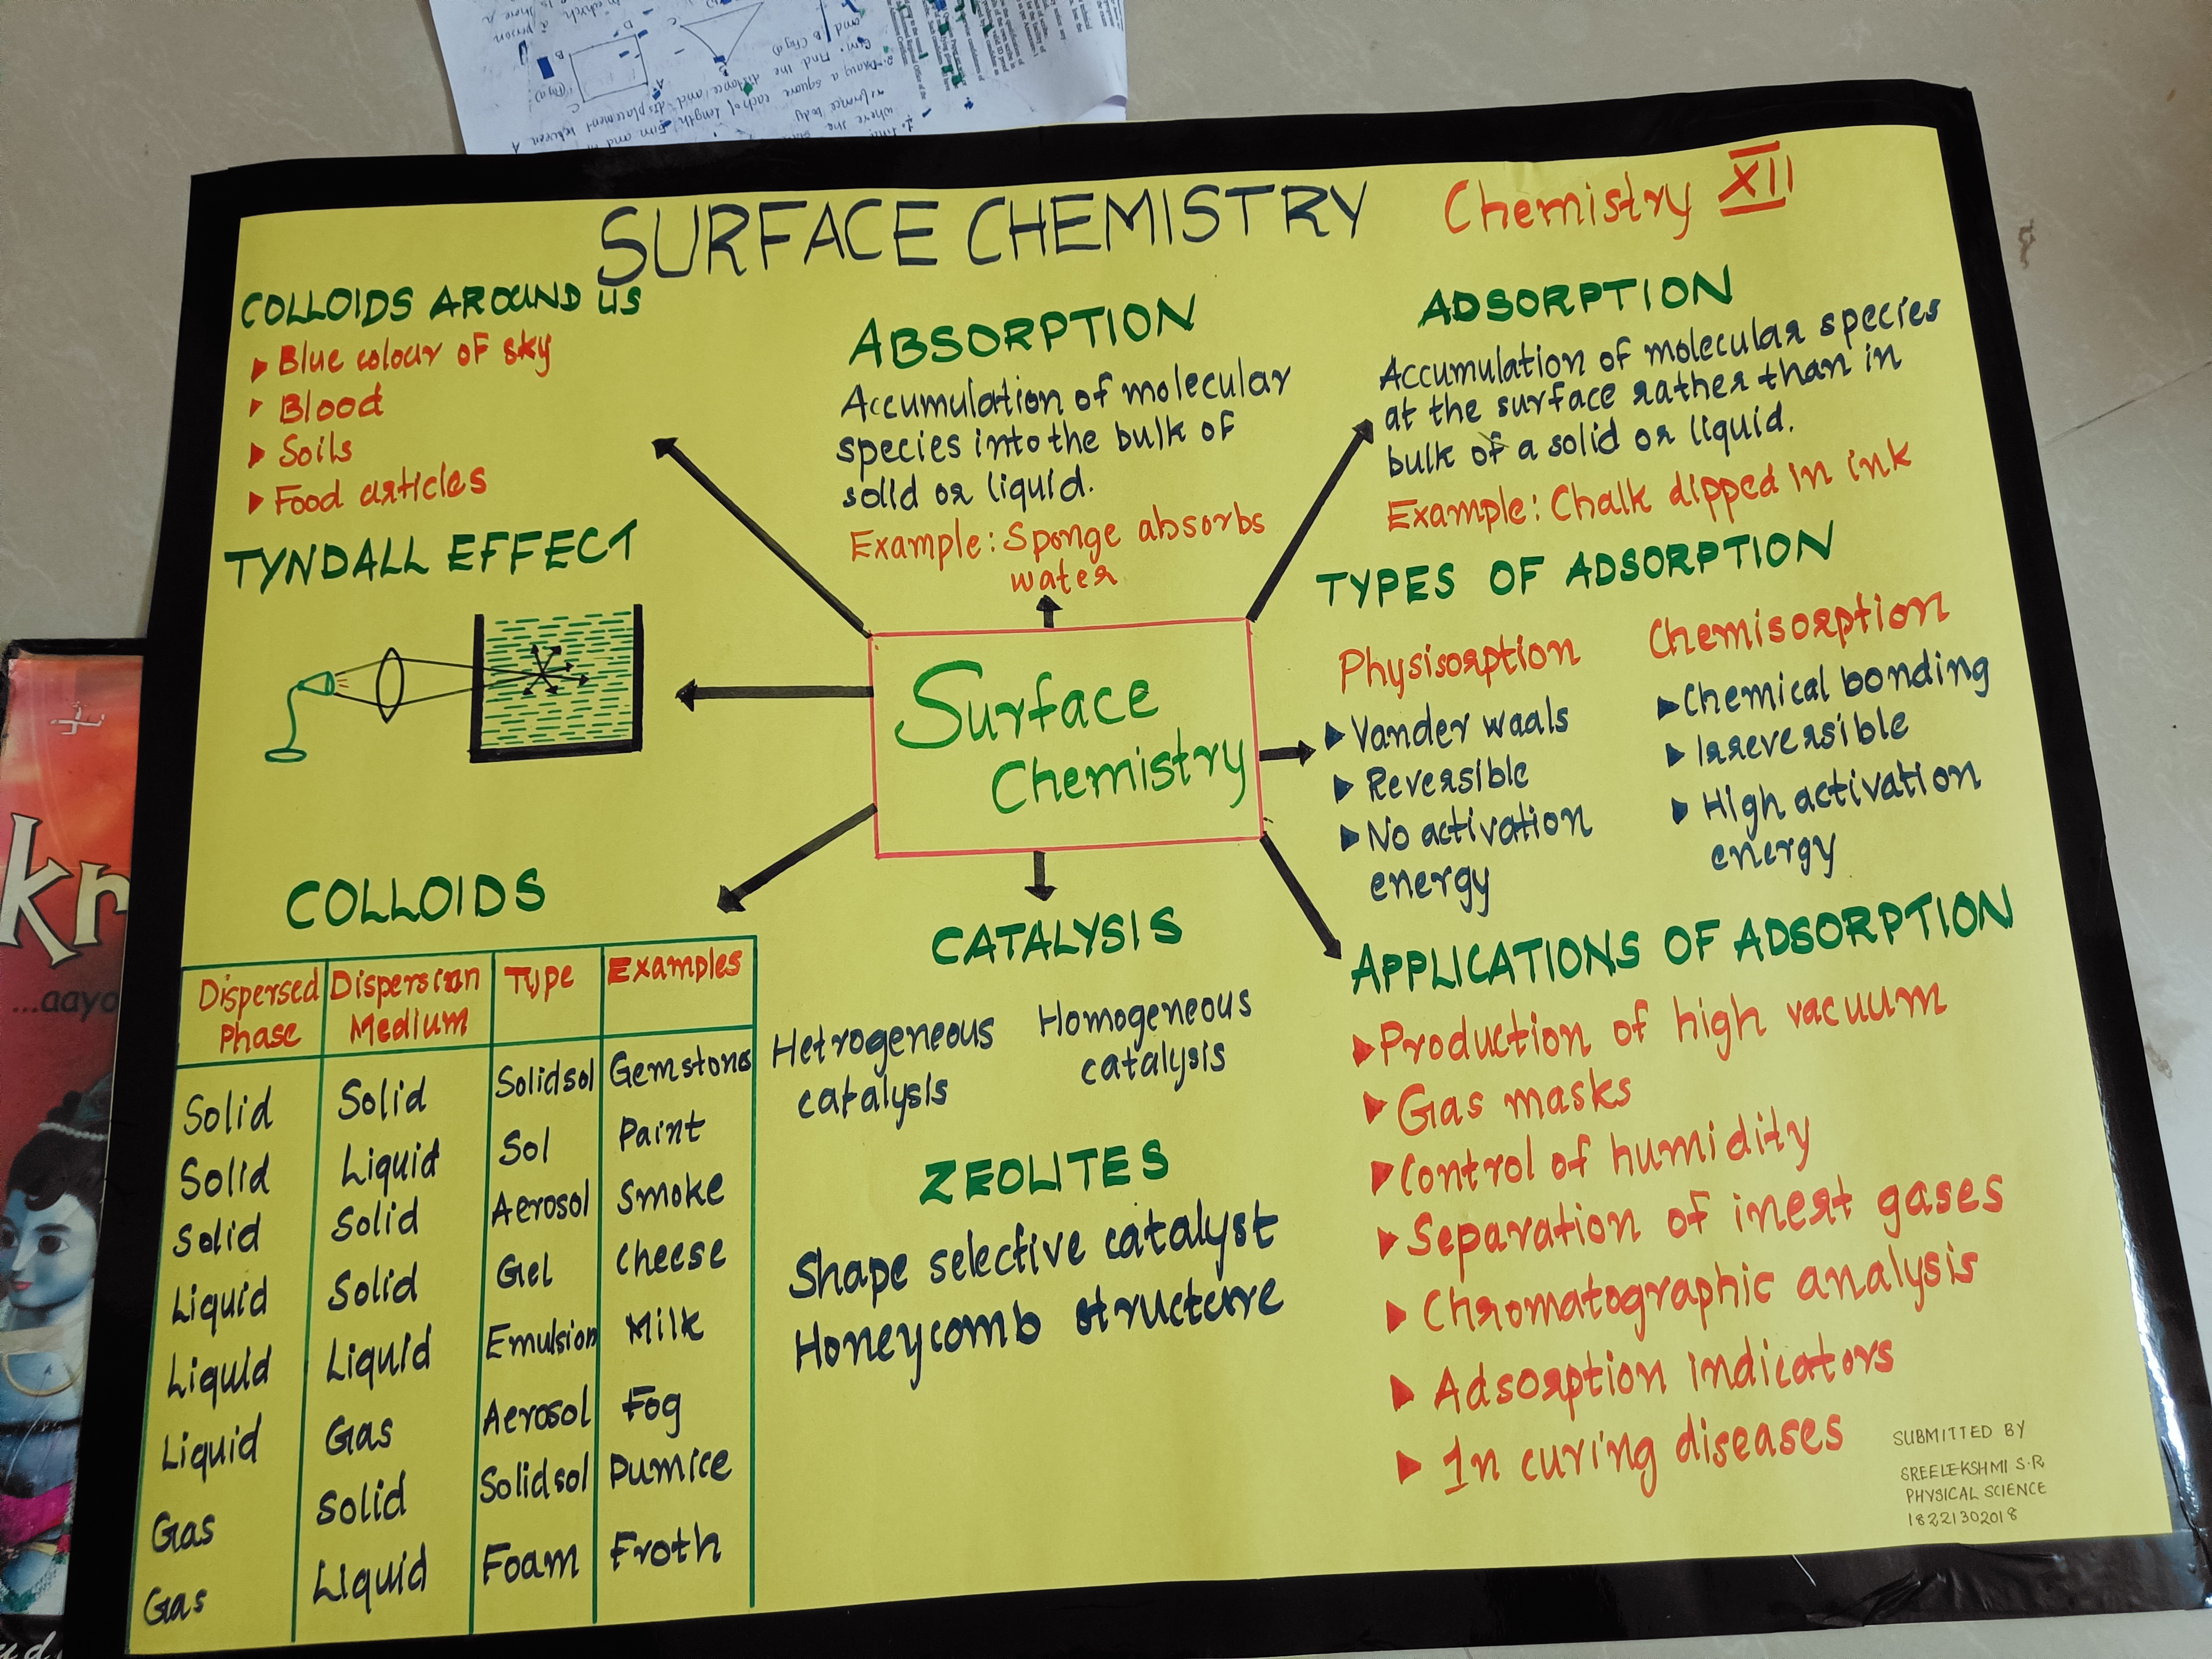 SURFACE CHEMISTRY
Chemistry XII
COLLOIDS AROUND US
Blue colour of sky
Blood
Soils
Food articles
TYNDALL EFFECT
ABSORPTION
Accumulation of molecular
species into the bulk of
solid or liquid.
Example: Sponge absorbs
water
ADSORPTION
Accumulation of molecular species
at the surface rather than in
bulk of a solid or liquid.
Example: Chalk dipped in ink
TYPES OF ADSORPTION
Physisorption
Vander waals
Reversible
No activation
energy
Chemisorption
Chemical bonding
Irreversible
High activation
energy
Surface
Chemistry
COLLOIDS
Dispersed Phase Dispersion Medium Type Examples
Solid Solid Solidsol Gemstone
Solid Liquid Sol Paint
Solid Solid Aerosol Smoke
Liquid Solid Gel Cheese
Liquid Liquid Emulsion Milk
Liquid Gas Aerosol Fog
Gas Solid Solidsol Pumice
Gas Liquid Foam Froth
CATALYSIS
Hetrogeneous
catalysis
Homogeneous
catalysis
ZEOLITES
Shape selective catalyst
Honeycomb structure
APPLICATIONS OF ADSORPTION
Production of high vacuum
Gas masks
Control of humidity
Separation of inert gases
Chromatographic analysis
Adsorption indicators
In curing diseases
SUBMITTED BY
SREELEKSHMI S.R
PHYSICAL SCIENCE
18221302018
kr
...aayo